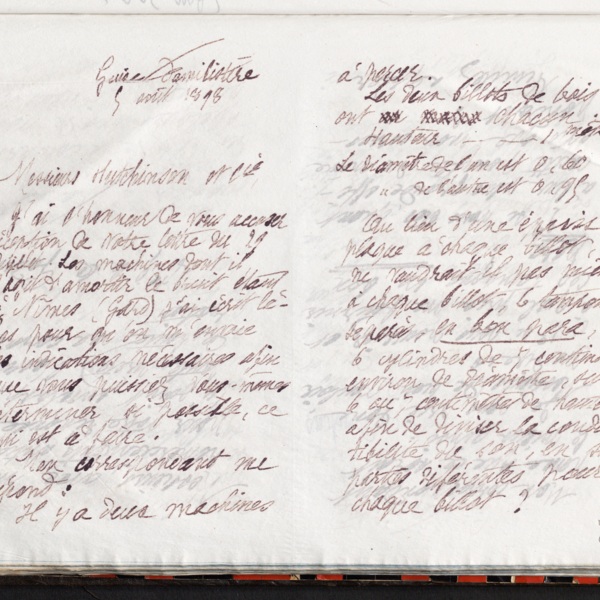 Guise Familistère
5 août 1898
Messieurs Hutchinson et Cie,
J'ai l'honneur de vous accuser
réception de votre lettre du 29
Les machines dont il
s'agit d'amortir le bruit étant
à Nîmes (Gard) j'ai écrit là-
bas pour qu'on m'envoie
les indications nécessaires afin
que vous puissiez vous-mêmes
déterminer, si possible, ce
qui est à faire.
Mon correspondant me
répond :
Il y a deux machines
à percer.
Les deux billots de bois
ont chacun
Hauteur - - - 1 mèt
Le diamètre de l'un est 0,60
" de l'autre est 0m95
Au lieu d'une épaisse
plaque à chaque billot,
ne vaudrait-il pas mie
à chaque billot, 6 tampon
séparés, en bon para,
6 cylindres de 5 centim
environ de diamètre, sur
6 ou 7 centimètres de haut
afin de diviser la condu
tibilité du son, en six
parties différentes pour
chaque billot ?